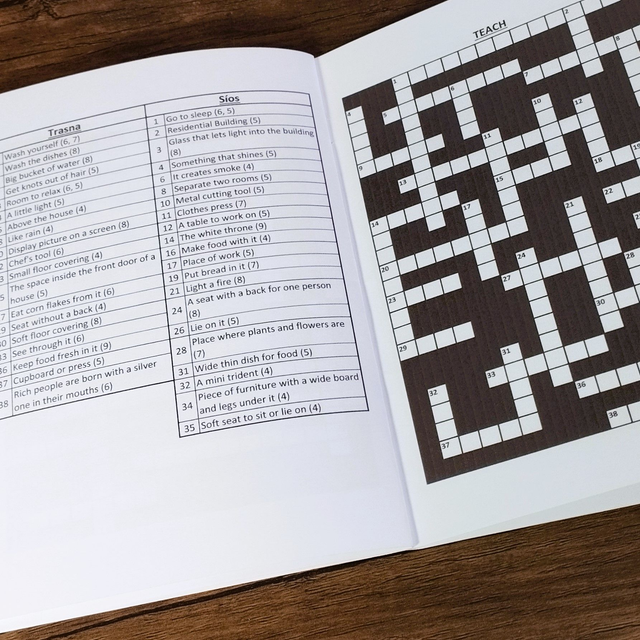 Trasna
Wash yourself (6, 7)
Wash the dishes (8)
Big bucket of water (8)
Get knots out of hair (5)
Room to relax (6, 5)
A little light (5)
Above the house (4)
Like rain (4)
Display picture on a screen (8)
Chef's tool (6)
Small floor covering (4)
The space inside the front door of a
house (5)
Eat corn flakes from it (6)
Seat without a back (4)
Soft floor covering (8)
See through it (6)
Keep food fresh in it (9)
Cupboard or press (5)
38 Rich people are born with a silver
one in their mouths (6)
Síos
1 Go to sleep (6, 5)
2 Residential Building (5)
3 Glass that lets light into the building
(8)
4 Something that shines (5)
6 It creates smoke (4)
8 Separate two rooms (5)
10 Metal cutting tool (5)
11 Clothes press (7)
12 A table to work on (5)
14 The white throne (9)
16 Make food with it (4)
17 Place of work (5)
19 Put bread in it (7)
21 Light a fire (8)
24 A seat with a back for one person
(8)
26 Lie on it (5)
28 Place where plants and flowers are
(7)
31 Wide thin dish for food (5)
32 A mini trident (4)
34 Piece of furniture with a wide board
and legs under it (4)
35 Soft seat to sit or lie on (4)
TEACH
2
1
8
6
7
4
5
10
12
11
9
18
19
13
15
22
14
17
21
20
24
28
27
23
30
29
31
33
36
32
38
37